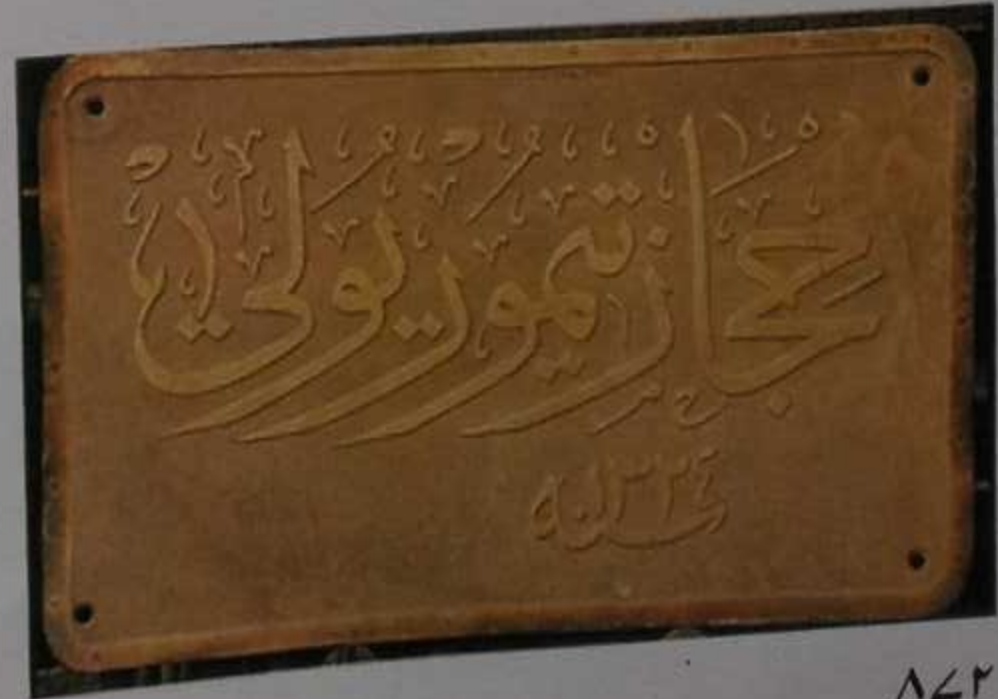 حجاز تيمور يولى
سنه ١٣٢٤
٨٤٢